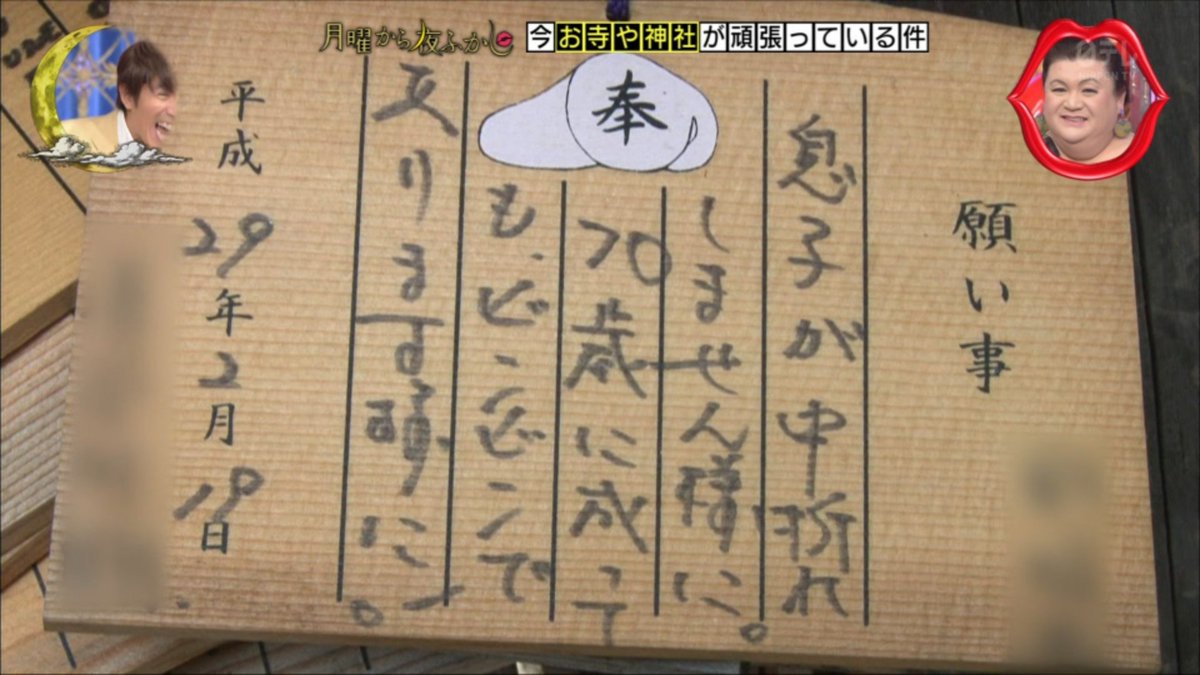 月曜から夜ふかし
今お寺や神社が頑張っている件
日テレ
奉
願い事
息子が中折れ
しません様に。
70歳に成って
も、ビンビンで
ります様に。
平成29年2月19日